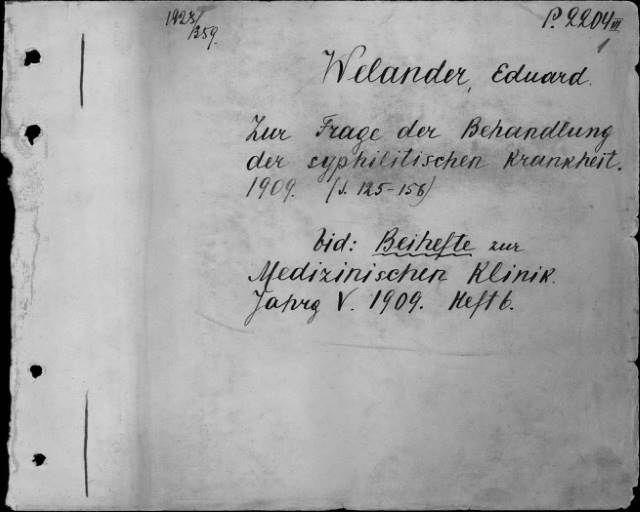 1923/
1359.
P. 2204 VII
1
Welander, Eduard.
Zur Frage der Behandlung
der syphilitischen Krankheit.
1909. (S. 125-156)
bid: Beihefte zur
Medizinischen Klinik.
Jahrg V. 1909. Heft 6.